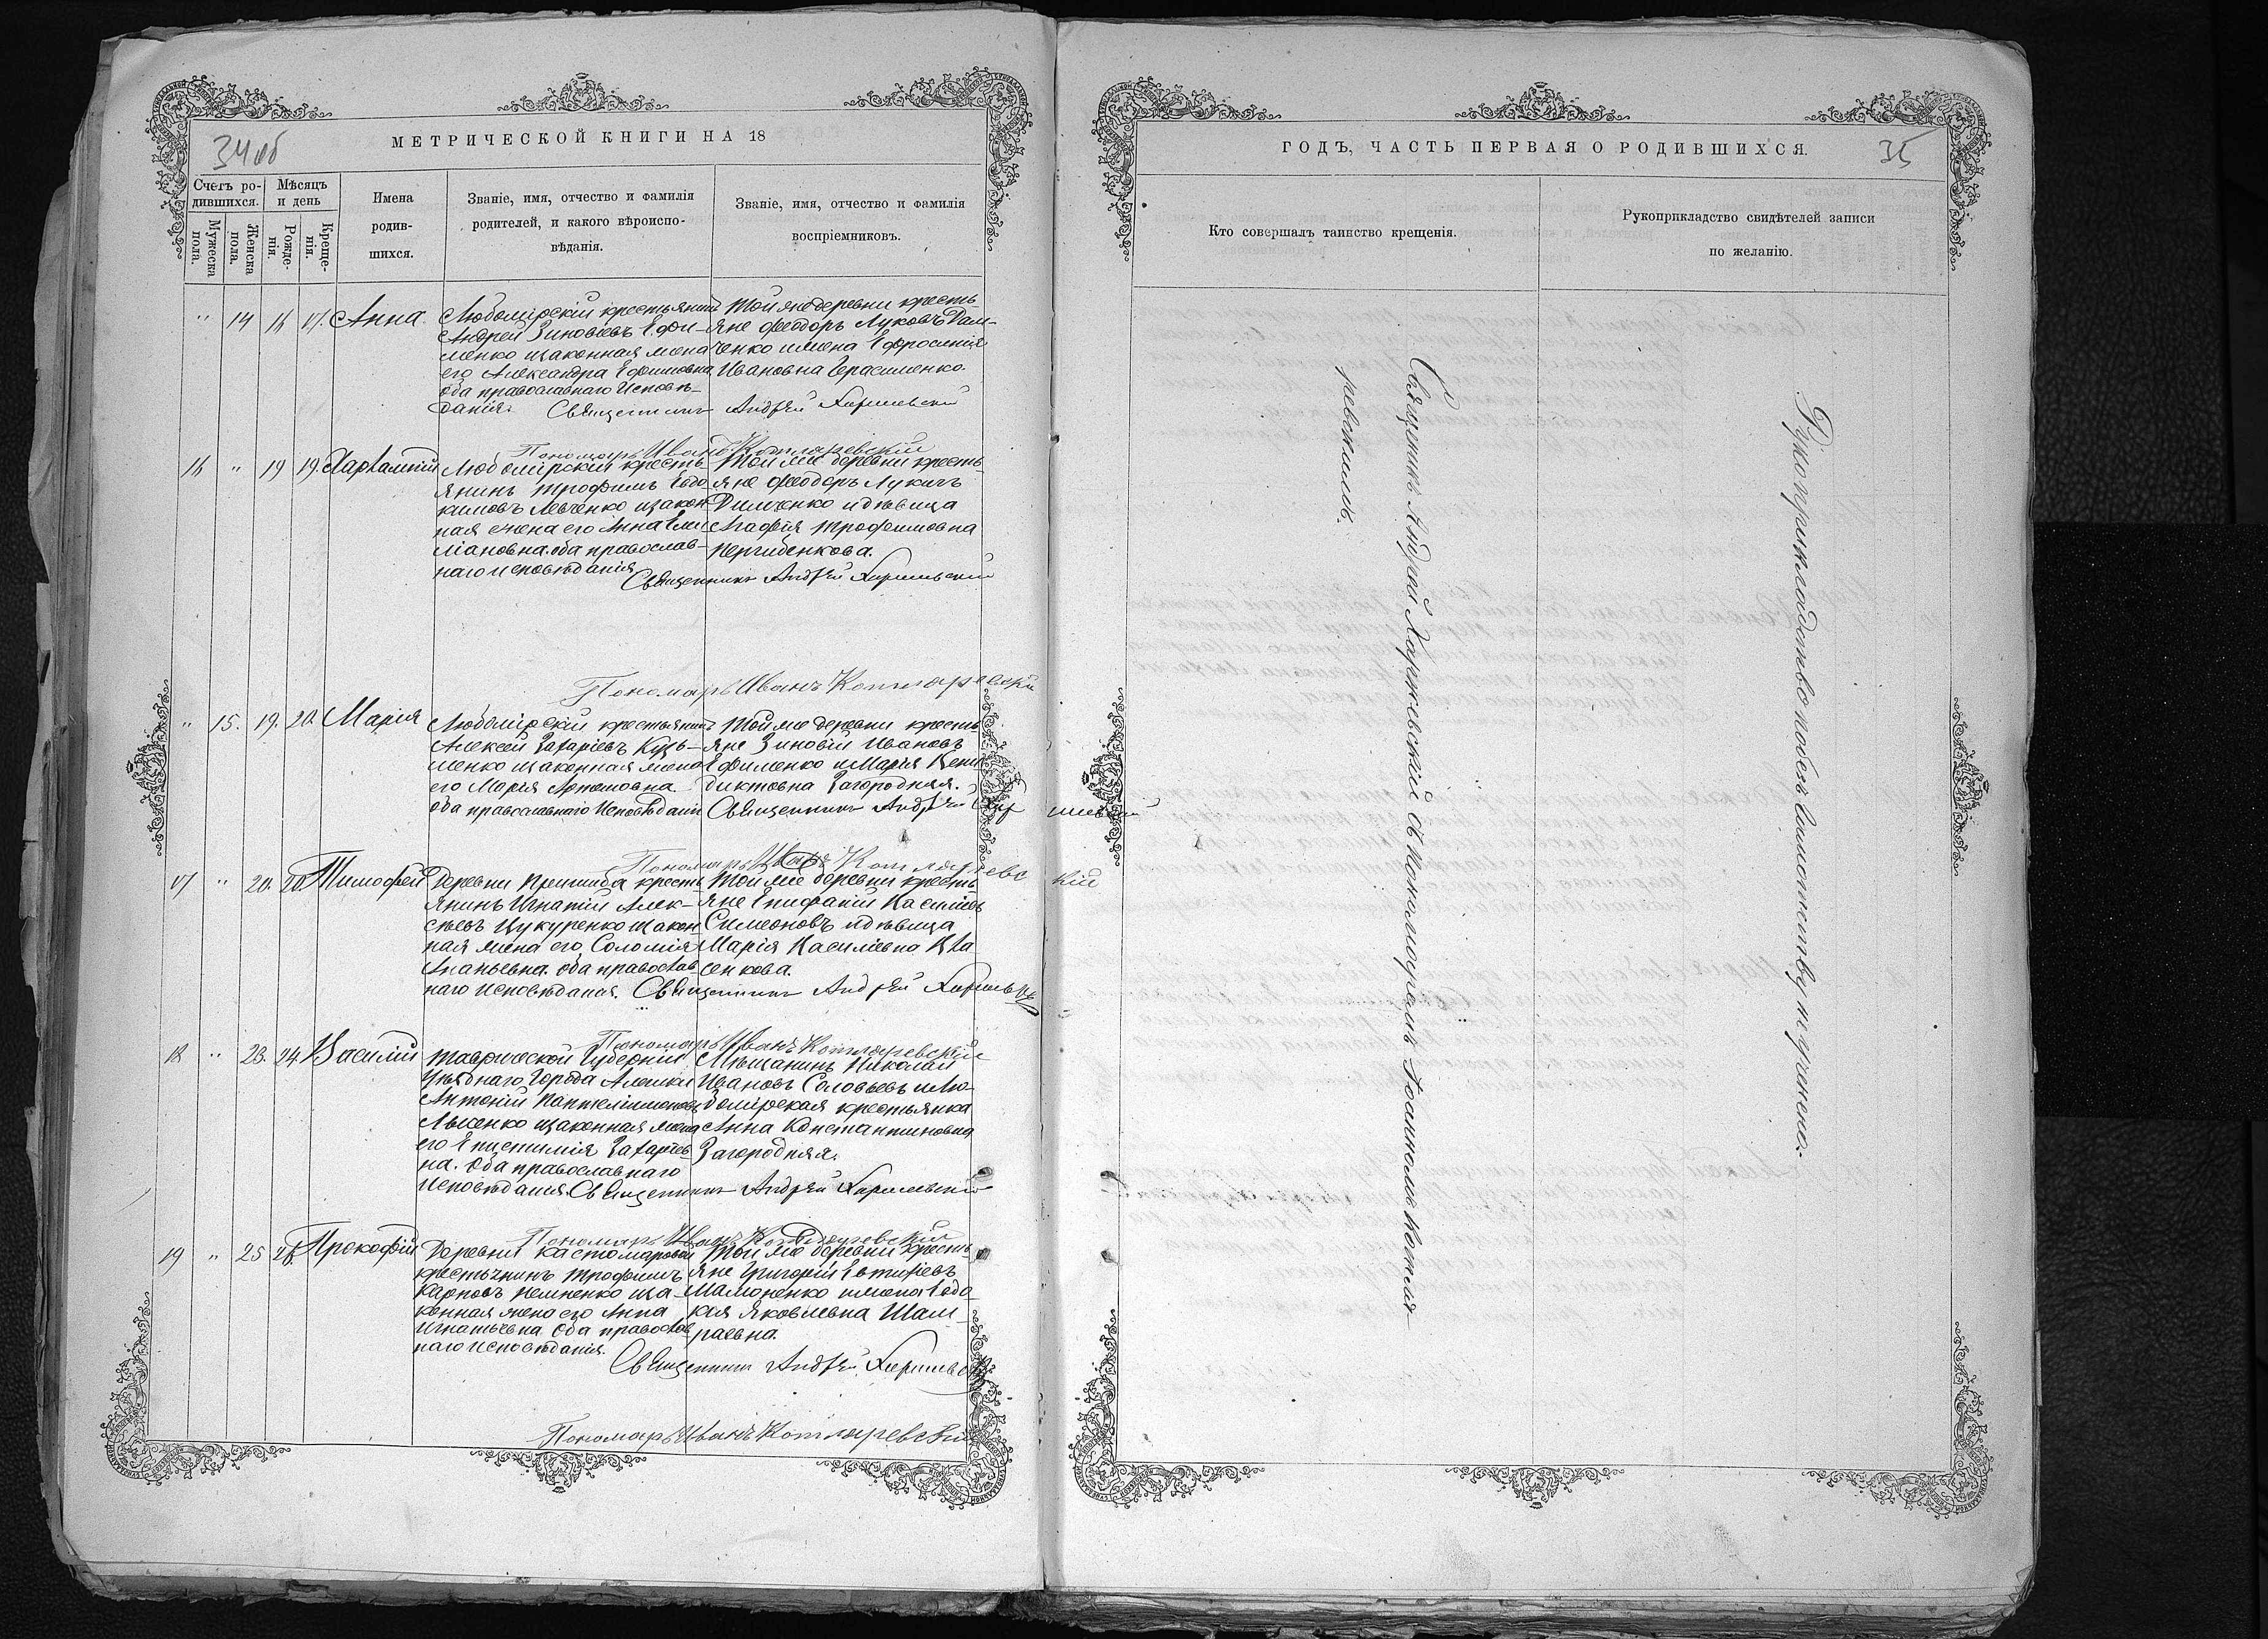 34 об
МЕТРИЧЕСКОЙ КНИГИ НА 18
Счетъ ро-
дившихся.
Мужеска
пола.
Женска
пола.
Мѣсяцъ
и день
Рожде-
нія.
Креще-
нія.
Имена
родив-
шихся.
Званіе, имя, отчество и фамилія
родителей, и какого вѣроиспо-
вѣданія.
Званіе, имя, отчество и фамилія
воспріемниковъ.
" 14 16 17. Анна.
Любомірскій крестьянинъ
Андрей Зиновіевъ Ефи-
менко изаконная жена
его Александра Ефимовна
оба православнаго Исповѣ-
данія.
Той же деревни кресть-
яне Феодоръ Луковъ Дам-
ченко ижена Ефросинія
Ивановна Герасименко.
Священникъ Андрей
Пономарь Иванъ Котляревскій
16 " 19 19. Харлампій
Любомірскій кресть-
янинъ Трофимъ Евдо-
кимовъ Левченко изакон-
ная жена его Анна Еми-
ліановна. оба православ-
наго исповѣданія
Той же деревни кресть-
яне Феодоръ Лукичъ
Димченко идѣвица
Агафія Трофимовна
Священникъ Андрей
Пономарь Иванъ Котляревскій
" 15. 19. 20. Марія
Любомірскій крестьянинъ
Алексей Захаріевъ Кузь-
менко изаконная жена
его Марія Артемовна
оба православнаго Исповѣданія
Той же деревни кресть-
яне Зиновій Ивановъ
Ефименко и Марія Вени-
диктовна Загородняя.
Священникъ Андрей
Пономарь Иванъ Котляревскій
17 " 20. 20 Тимофей
Деревни кресть-
янинъ Игнатій Алек-
сѣевъ Цукуренко изакон-
ная жена его Соломія
Ананьевна. оба православ-
наго исповѣданія.
Той же деревни кресть-
яне Епифаній Василіевъ
Симеоновъ идѣвица
Марія Василіевна Ква-
сенкова.
Священникъ Андрей
Пономарь Иванъ Котляревскій
18 " 23. 24. Василій
Таврической Губерніи
Уѣзднаго Города Алешки
Антоній Пантелеимоновъ
Лысенко изаконная жена
его Епистимія Захаріев-
на. Оба православнаго
Исповѣданія.
Мѣщанинъ Николай
Ивановъ Соловьевъ и Лю-
бомірская крестьянка
Анна Константиновна
Загородняя.
Священникъ Андрей
Пономарь Иванъ Котляревскій
19 " 25 26. Прокофій
Деревни
крестьянинъ Трофимъ
Карповъ Немненко иза-
конная жена его Анна
Игнатьевна Оба православ-
наго исповѣданія.
Той же деревни кресть-
яне Григорій Евтихіевъ
Мамоненко ижена Евдо-
кия Яковлевна Шам-
раевна.
Священникъ Андрей
Пономарь Иванъ Котляревскій
ГОДЪ, ЧАСТЬ ПЕРВАЯ О РОДИВШИХСЯ.
35
Кто совершалъ таинство крещенія.
Рукоприкладство свидѣтелей записи
по желанію.
Священникъ Андрей съ Пономаремъ Іоанномъ Котля-
ревскимъ.
Рукоприкладство